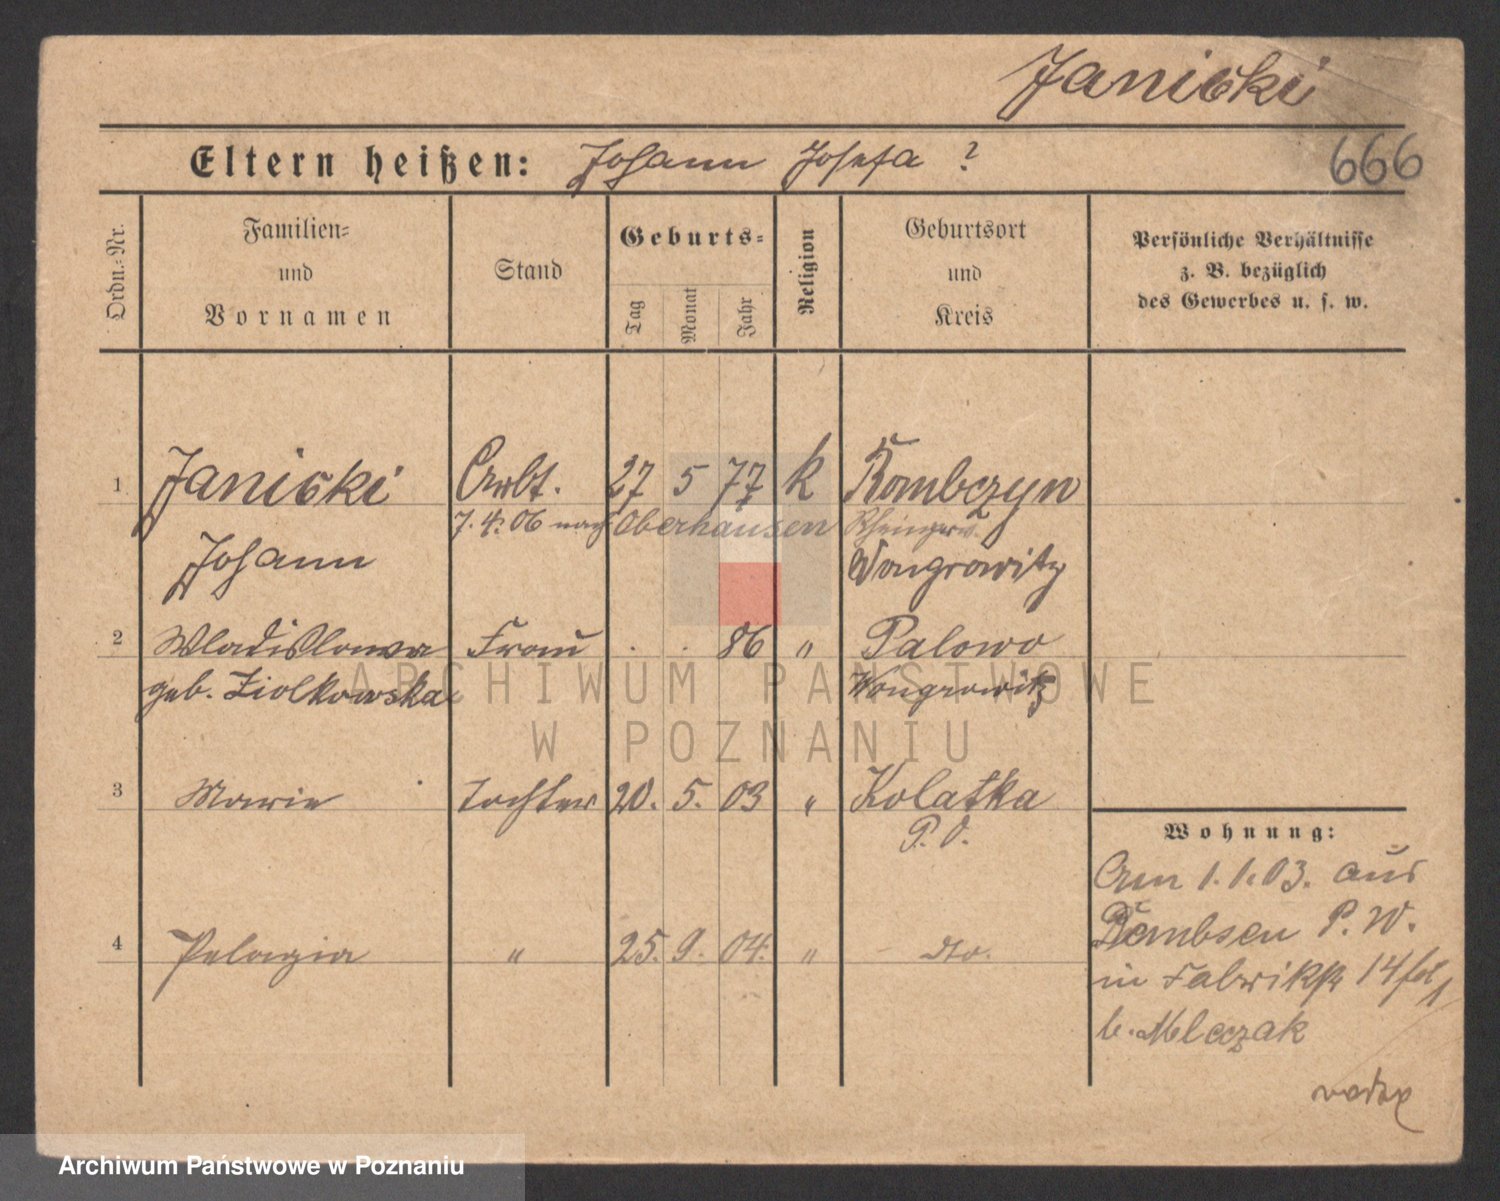 Janicki
Eltern heißen: Johann Josefa ?
666
Ordn.-Nr.
Familien-
und
Vornamen
Stand
Geburts-
Tag
Monat
Jahr
Religion
Geburtsort
und
Kreis
Persönliche Verhältnisse
z. B. bezüglich
des Gewerbes u. s. w.
1 Janicki Arbt. 27 5 77 k Rombczyn
7. 4. 06 nach Oberhausen
Johann Wongrowitz
2 Wladislawa Frau . . 86 " Palowo
geb. Ziolkowska Wongrowitz
3 Marie Tochter 20. 5. 03 " Kolatka
P. O.
4 Pelagia " 25. 9. 04. " dto.
Wohnung:
Am 1. 1. 03. aus
Dembsen P. W.
in Fabrikstr 14
b. Mleczak
ARCHIWUM PAŃSTWOWE
W POZNANIU
Archiwum Państwowe w Poznaniu